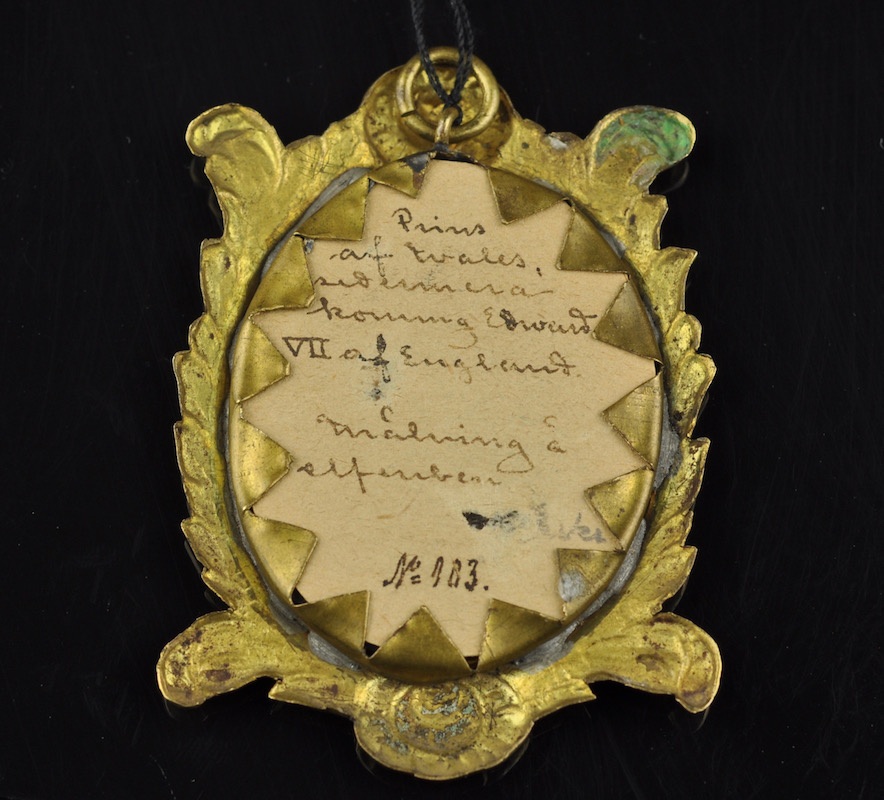 Prins
af Wales,
sedermera
konung Edward
VII af England.
Målning å
elfenben
№ 103.